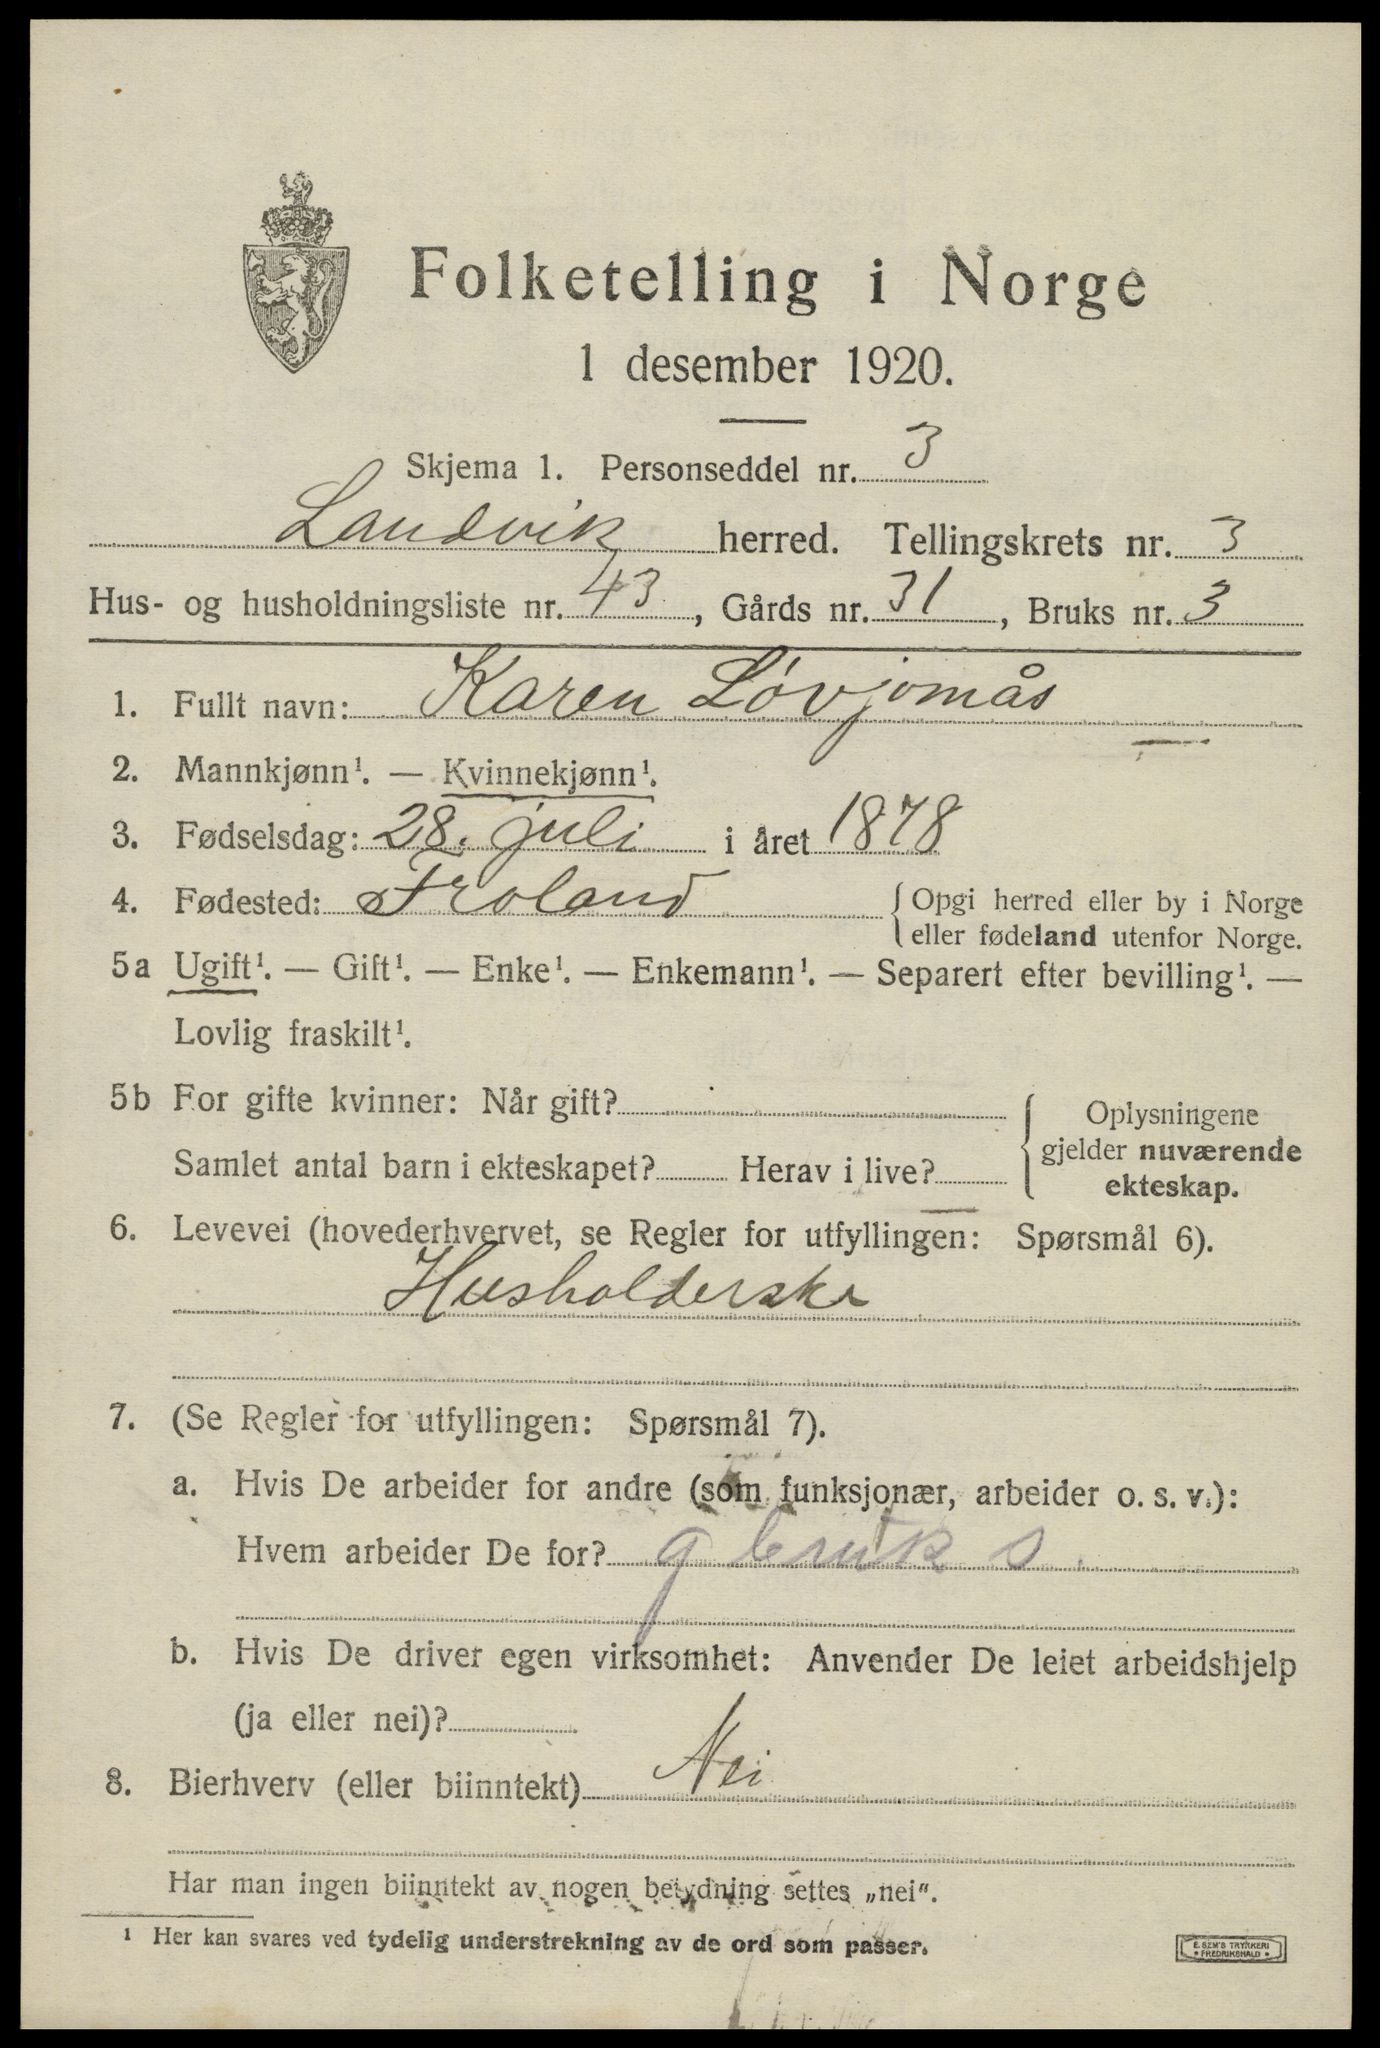 Folketelling i Norge
1 desember 1920.
Skjema 1. Personseddel nr. 3
Landvik herred. Tellingskrets nr. 3
Hus- og husholdningsliste nr. 43, Gårds nr. 31, Bruks nr. 3
1. Fullt navn: Karen Løvjomås
2. Mannkjønn¹. — Kvinnekjønn¹.
3. Fødselsdag: 28. juli i året 1878
4. Fødested: Froland {Opgi herred eller by i Norge
eller fødeland utenfor Norge.
5a Ugift¹. — Gift¹. — Enke¹. — Enkemann¹. — Separert efter bevilling¹. —
Lovlig fraskilt¹.
5b For gifte kvinner: Når gift?
Samlet antal barn i ekteskapet? Herav i live?
Oplysningene
gjelder nuværende
ekteskap.
6. Levevei (hovederhvervet, se Regler for utfyllingen: Spørsmål 6).
Husholderske
7. (Se Regler for utfyllingen: Spørsmål 7).
a. Hvis De arbeider for andre (som funksjonær, arbeider o. s. v.):
Hvem arbeider De for? g bruk s.
b. Hvis De driver egen virksomhet: Anvender De leiet arbeidshjelp
(ja eller nei)?
8. Bierhverv (eller biinntekt) Nei
Har man ingen biinntekt av nogen betydning settes „nei“.
¹ Her kan svares ved tydelig understrekning av de ord som passer.
E. SEM'S TRYKKERI
FREDRIKSHALD